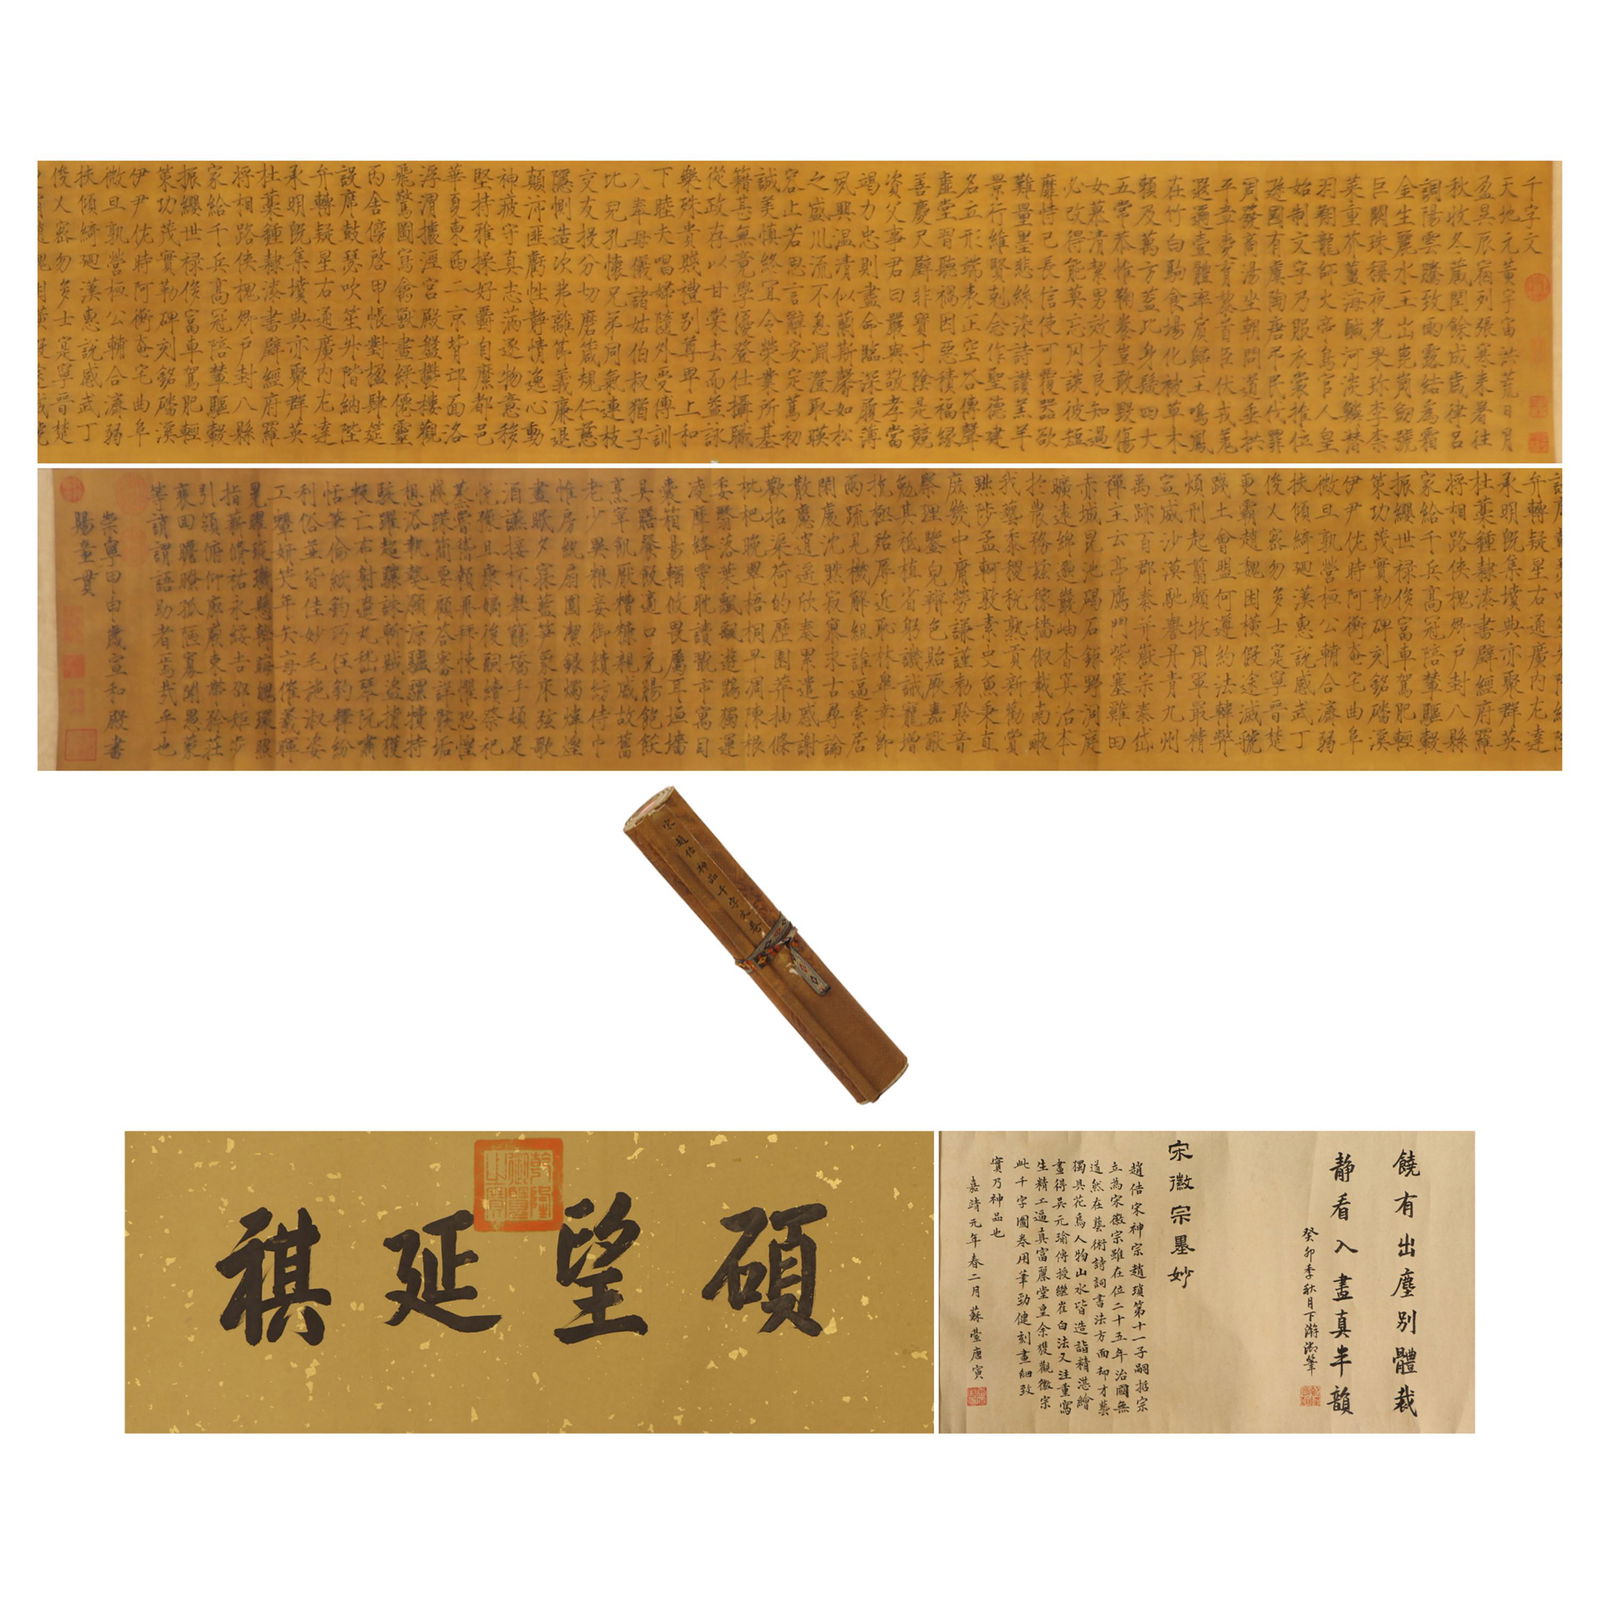 千字文
天地元黃宇宙洪荒日月
盈昃辰宿列張寒來暑往
秋收冬藏閏餘成歲律呂
調陽雲騰致雨露結為霜
金生麗水玉出崑岡劍號
巨闕珠稱夜光果珍李柰
菜重芥薑海鹹河淡鱗潛
羽翔龍師火帝鳥官人皇
始制文字乃服衣裳推位
遜國有虞陶唐弔民伐罪
周發商湯坐朝問道垂拱
平章愛育黎首臣伏戎羌
遐邇壹體率賓歸王鳴鳳
在竹白駒食場化被草木
賴及萬方蓋此身髮四大
五常恭惟鞠養豈敢毀傷
女慕清潔男效才良知過
必改得能莫忘罔談彼短
靡恃己長信使可覆器欲
難量墨悲絲染詩讚羔羊
景行維賢剋念作聖德建
名立形端表正空谷傳聲
虛堂習聽禍因惡積福緣
善慶尺璧非寶寸陰是競
資父事君曰嚴與敬孝當
竭力忠則盡命臨深履薄
夙興溫清似蘭斯馨如松
之盛川流不息淵澄取暎
容止若思言辭安定篤初
誠美慎終宜令榮業所基
籍甚無竟學優登仕攝職
從政存以甘棠去而益詠
樂殊貴賤禮別尊卑上和
下睦夫唱婦隨外受傅訓
入奉母儀諸姑伯叔猶子
比兒孔懷兄弟同氣連枝
交友投分切磨箴規仁慈
隱惻造次弗離節義廉退
顛沛匪虧性靜情逸心動
神疲守真志滿逐物意移
堅持雅操好爵自縻都邑
華夏東西二京背邙面洛
浮渭據涇宮殿盤鬱樓觀
飛驚圖寫禽獸畫綵僊靈
丙舍傍啓甲帳對楹肆筵
設席鼓瑟吹笙升階納陛
弁轉疑星右通廣內左達
承明既集墳典亦聚群英
杜藁鍾隸漆書壁經府羅
將相路俠槐卿戶封八縣
家給千兵高冠陪輦驅轂
振纓世祿侈富車駕肥輕
策功茂實勒碑刻銘磻溪
伊尹佐時阿衡奄宅曲阜
微旦孰營桓公輔合濟弱
扶傾綺迴漢惠說感武丁
俊乂密勿多士寔寧晉楚
弁轉疑星右通廣內左達
承明既集墳典亦聚群英
杜藁鍾隸漆書壁經府羅
將相路俠槐卿戶封八縣
家給千兵高冠陪輦驅轂
振纓世祿侈富車駕肥輕
策功茂實勒碑刻銘磻溪
伊尹佐時阿衡奄宅曲阜
微旦孰營桓公輔合濟弱
扶傾綺迴漢惠說感武丁
俊乂密勿多士寔寧晉楚
更霸趙魏困橫假途滅虢
踐土會盟何遵約法韓弊
煩刑起翦頗牧用軍最精
宣威沙漠馳譽丹青九州
禹跡百郡秦并嶽宗泰岱
禪主云亭鴈門紫塞雞田
赤城昆池碣石鉅野洞庭
曠遠綿邈巖岫杳冥治本
於農務茲稼穡俶載南畝
我藝黍稷稅熟貢新勸賞
黜陟孟軻敦素史魚秉直
庶幾中庸勞謙謹勑聆音
察理鑒皃辨色貽厥嘉猷
勉其祗植省躬譏誡寵增
抗極殆辱近恥林皋幸即
兩疏見機解組誰逼索居
閑處沈默寂寥求古尋論
散慮逍遙欣奏累遣慼謝
歡招渠荷的歷園莽抽條
枇杷晚翠梧桐早凋陳根
委翳落葉飄颻遊鵾獨運
凌摩絳霄耽讀翫市寓目
囊箱易輶攸畏屬耳垣墻
具膳飡飯適口充腸飽飫
烹宰飢厭糟糠親戚故舊
老少異糧妾御績紡侍巾
帷房紈扇圓潔銀燭煒煌
晝眠夕寐藍筍象床弦歌
酒讌接杯舉觴矯手頓足
悅豫且康嫡後嗣續祭祀
蒸嘗稽顙再拜悚懼恐惶
牋牒簡要顧答審詳骸垢
想浴執熱願涼驢騾犢特
駭躍超驤誅斬賊盜捕獲
叛亡布射遼丸嵇琴阮嘯
恬筆倫紙鈞巧任釣釋紛
利俗並皆佳妙毛施淑姿
工顰妍笑年矢每催羲暉
晃曜琁璣懸斡晦魄環照
指薪脩祜永綏吉劭矩步
引領俯仰廊廟束帶矜莊
徘徊瞻眺孤陋寡聞愚蒙
等誚謂語助者焉哉乎也
崇寧甲申歲宣和殿書
賜童貫
宋趙佶神品千字文卷
碩望延祺
乾隆御覽之寶
饒有出塵別體裁
靜看入畫真半韻
癸卯季秋月下澣御筆
宋徽宗墨妙
趙佶宋神宗趙瑣第十一子嗣哲宗
立為宋徽宗雖在位二十五年治國無
道然在藝術詩詞書法方面却才藝
獨具花鳥人物山水皆造詣精湛繪
畫得吳元瑜傳授繼崔白法又注重寫
生精工逼真富麗堂皇余獲觀徽宗
此千字圖卷用筆勁健刻畫細致
實乃神品也
嘉靖元年春二月蘇臺唐寅